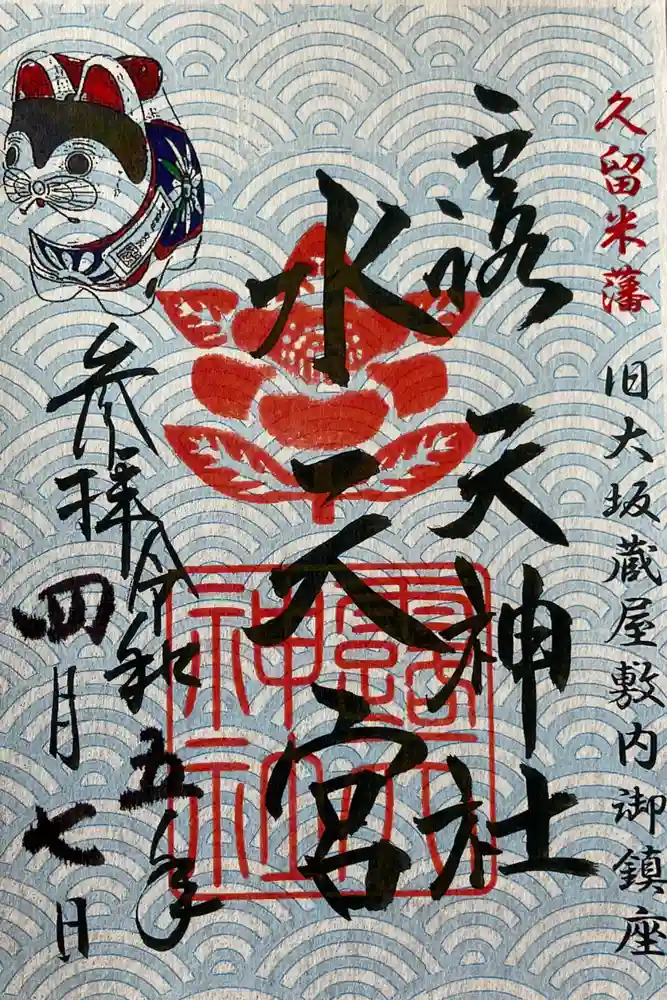 久留米藩
旧大坂蔵屋敷内御鎮座
露天神社
水天宮
参拝令和五年
四月七日